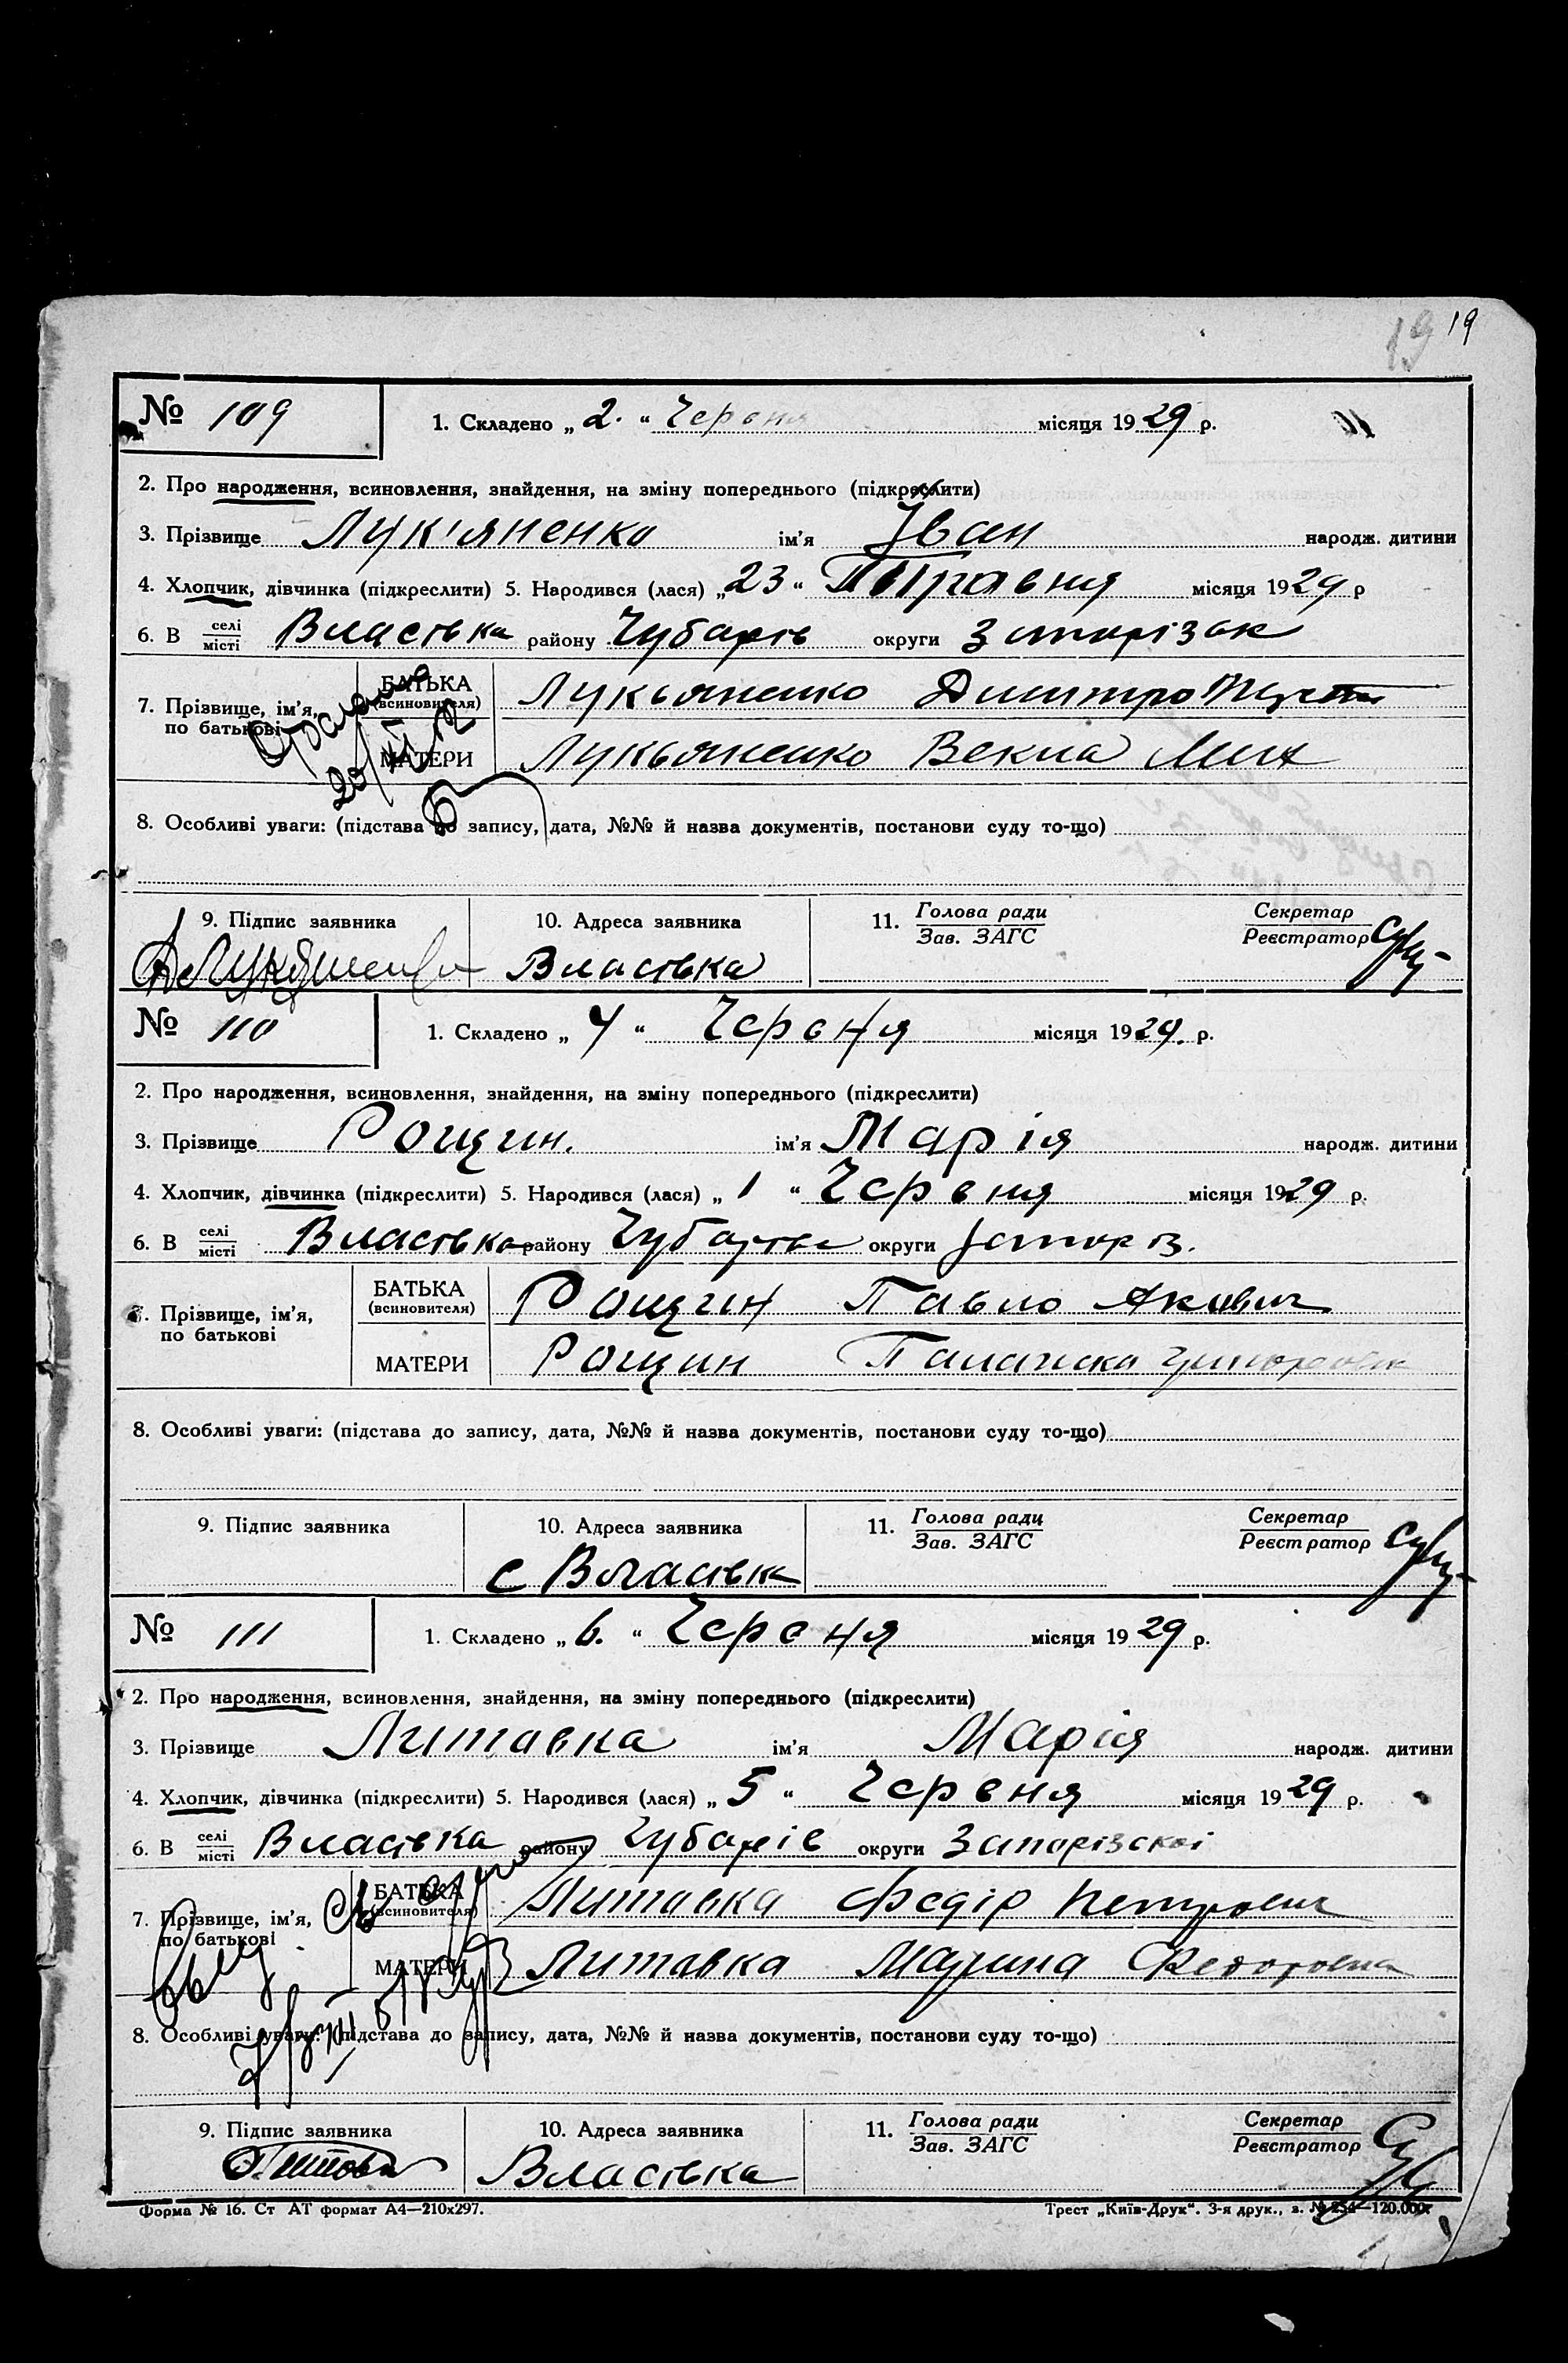 19 19
№ 109
1. Складено „ 2. “ Червня місяця 1929 р.
2. Про народження, всиновлення, знайдення, на зміну попереднього (підкреслити)
3. Прізвище Лук'яненко ім'я Іван народж. дитини
4. Хлопчик, дівчинка (підкреслити) 5. Народився (лася) „23“ Травня місяця 1929 р
6. В селі/місті Власівка району Чубарів округи Запорізьк
7. Прізвище, ім'я, по батькові
БАТЬКА (всиновителя) Лукьяненко Дмитро
МАТЕРИ Лукьяненко Векла Мих
8. Особливі уваги: (підстава до запису, дата, №№ й назва документів, постанови суду то-що)
9. Підпис заявника 10. Адреса заявника 11. Голова ради/Зав. ЗАГС Секретар/Реєстратор
Власівка
№ 110
1. Складено „ 4 “ Червня місяця 1929. р.
2. Про народження, всиновлення, знайдення, на зміну попереднього (підкреслити)
3. Прізвище Рощин. ім'я Марія народж. дитини
4. Хлопчик, дівчинка (підкреслити) 5. Народився (лася) „ 1 “ Червня місяця 1929 р.
6. В селі/місті Власівка району округи Запоріз.
7. Прізвище, ім'я, по батькові
БАТЬКА (всиновителя) Рощин Павло Якович
МАТЕРИ Рощин Палажка
8. Особливі уваги: (підстава до запису, дата, №№ й назва документів, постанови суду то-що)
9. Підпис заявника 10. Адреса заявника 11. Голова ради/Зав. ЗАГС Секретар/Реєстратор
с Власівка
№ 111
1. Складено „ 6. “ Червня місяця 1929 р.
2. Про народження, всиновлення, знайдення, на зміну попереднього (підкреслити)
3. Прізвище Литавка ім'я Марія народж. дитини
4. Хлопчик, дівчинка (підкреслити) 5. Народився (лася) „ 5 “ Червня місяця 1929 р.
6. В селі/місті Власівка району Чубарів округи Запорізскої
7. Прізвище, ім'я, по батькові
БАТЬКА (всиновителя) Литавка Федір Петрович
МАТЕРИ Литавка Марина Федоровна
8. Особливі уваги: (підстава до запису, дата, №№ й назва документів, постанови суду то-що)
9. Підпис заявника 10. Адреса заявника 11. Голова ради/Зав. ЗАГС Секретар/Реєстратор
Власівка
Форма № 16. Ст АТ формат А4—210х297. Трест „Київ-Друк“. 3-я друк., з. № 254—120.000.